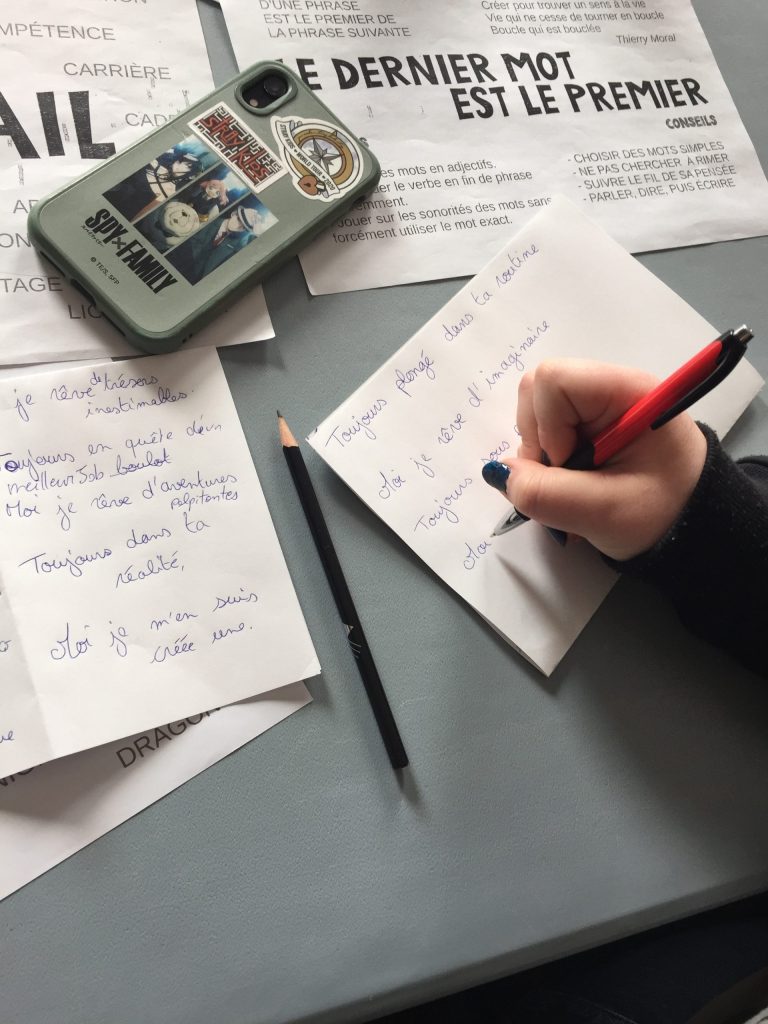 MPÉTENCE
CARRIÈRE
CAD
AIL
TAGE
D'UNE PHRASE
EST LE PREMIER DE
LA PHRASE SUIVANTE
Créer pour trouver un sens à la vie
Vie qui ne cesse de tourner en boucle
Boucle qui est bouclée
Thierry Moral
LE DERNIER MOT
EST LE PREMIER
CONSEILS
es mots en adjectifs.
uer le verbe en fin de phrase
emment.
Jouer sur les sonorités des mots sans
forcément utiliser le mot exact.
- CHOISIR DES MOTS SIMPLES
- NE PAS CHERCHER À RIMER
- SUIVRE LE FIL DE SA PENSÉE
- PARLER, DIRE, PUIS ÉCRIRE
STRAY KIDS
STRAY KIDS WORLD TOUR
SPY×FAMILY
je rêve de trésors
inestimables.
Toujours en quête d'un
meilleur job boulot
Moi je rêve d'aventures
palpitantes
Toujours dans ta
réalité,
Moi je m'en suis
créée une.
Toujours plongé dans ta routine
Moi je rêve d'imaginaire
Toujours sous
Moi
DRAGON